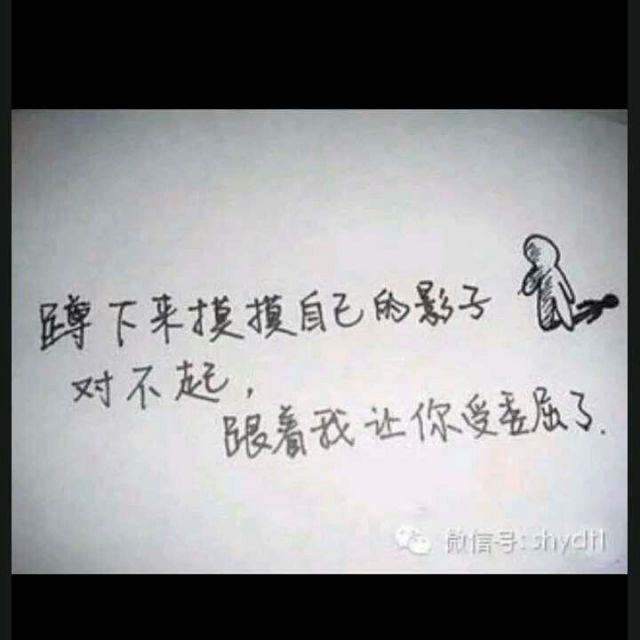 蹲下来摸摸自己的影子
对不起，
跟着我让你受委屈了.
微信号: shydfl